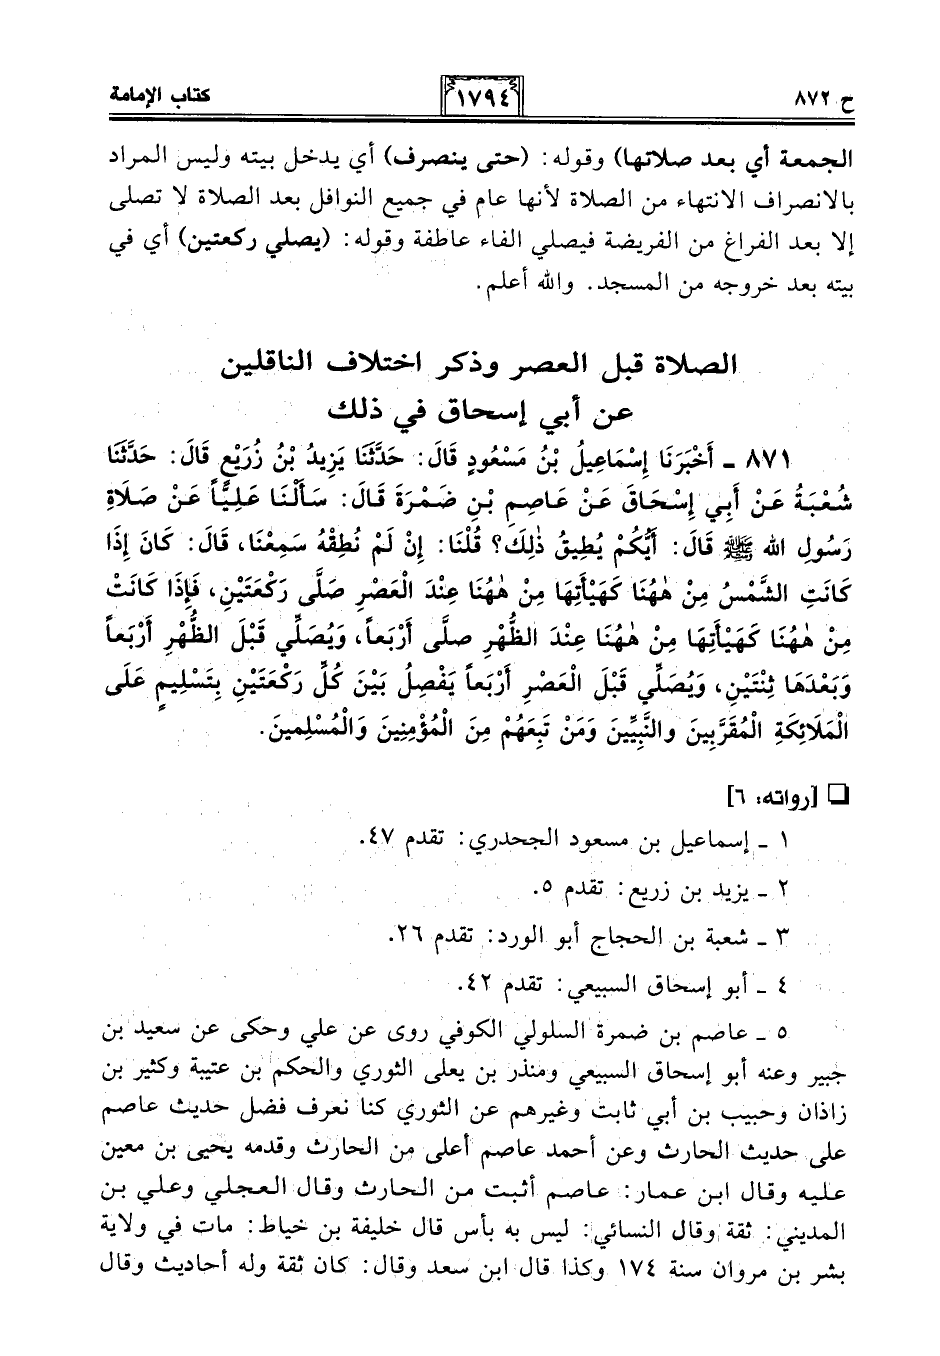 ح ٨٧٢ ١٧٩٤ كتاب الإمامة
الجمعة أي بعد صلاتها) وقوله: (حتى ينصرف) أي يدخل بيته وليس المراد
بالانصراف الانتهاء من الصلاة لأنها عام في جميع النوافل بعد الصلاة لا تصلى
إلا بعد الفراغ من الفريضة فيصلي الفاء عاطفة وقوله: (يصلي ركعتين) أي في
بيته بعد خروجه من المسجد. والله أعلم.
الصلاة قبل العصر وذكر اختلاف الناقلين
عن أبي إسحاق في ذلك
٨٧١ ـ أَخْبَرَنَا إِسْمَاعِيلُ بْنُ مَسْعُودٍ قَالَ: حَدَّثَنَا يَزِيدُ بْنُ زُرَيْعٍ قَالَ: حَدَّثَنَا
شُعْبَةُ عَنْ أَبِي إِسْحَاقَ عَنْ عَاصِمِ بْنِ ضَمْرَةَ قَالَ: سَأَلْنَا عَلِيًّا عَنْ صَلَاةِ
رَسُولِ الله ﷺ قَالَ: أَيُّكُمْ يُطِيقُ ذٰلِكَ؟ قُلْنَا: إِنْ لَمْ نُطِقْهُ سَمِعْنَا، قَالَ: كَانَ إِذَا
كَانَتِ الشَّمْسُ مِنْ هٰهُنَا كَهَيْأَتِهَا مِنْ هٰهُنَا عِنْدَ الْعَصْرِ صَلَّى رَكْعَتَيْنِ، فَإِذَا كَانَتْ
مِنْ هٰهُنَا كَهَيْأَتِهَا مِنْ هٰهُنَا عِنْدَ الظُّهْرِ صلَّى أَرْبَعاً، وَيُصَلِّي قَبْلَ الظُّهْرِ أَرْبَعاً
وَبَعْدَهَا ثِنْتَيْنِ، وَيُصَلِّي قَبْلَ الْعَصْرِ أَرْبَعاً يَفْصِلُ بَيْنَ كُلِّ رَكْعَتَيْنِ بِتَسْلِيمٍ عَلَى
الْمَلَائِكَةِ الْمُقَرَّبِينَ وَالنَّبِيِّينَ وَمَنْ تَبِعَهُمْ مِنَ الْمُؤْمِنِينَ وَالْمُسْلِمِينَ.
❏ [رواته: ٦]
١ ـ إسماعيل بن مسعود الجحدري: تقدم ٤٧.
٢ ـ يزيد بن زريع: تقدم ٥.
٣ ـ شعبة بن الحجاج أبو الورد: تقدم ٢٦.
٤ ـ أبو إسحاق السبيعي: تقدم ٤٢.
٥ ـ عاصم بن ضمرة السلولي الكوفي روى عن علي وحكى عن سعيد بن
جبير وعنه أبو إسحاق السبيعي ومنذر بن يعلى الثوري والحكم بن عتيبة وكثير بن
زاذان وحبيب بن أبي ثابت وغيرهم عن الثوري كنا نعرف فضل حديث عاصم
على حديث الحارث وعن أحمد عاصم أعلى من الحارث وقدمه يحيى بن معين
عليه وقال ابن عمار: عاصم أثبت من الحارث وقال العجلي وعلي بن
المديني: ثقة وقال النسائي: ليس به بأس قال خليفة بن خياط: مات في ولاية
بشر بن مروان سنة ١٧٤ وكذا قال ابن سعد وقال: كان ثقة وله أحاديث وقال